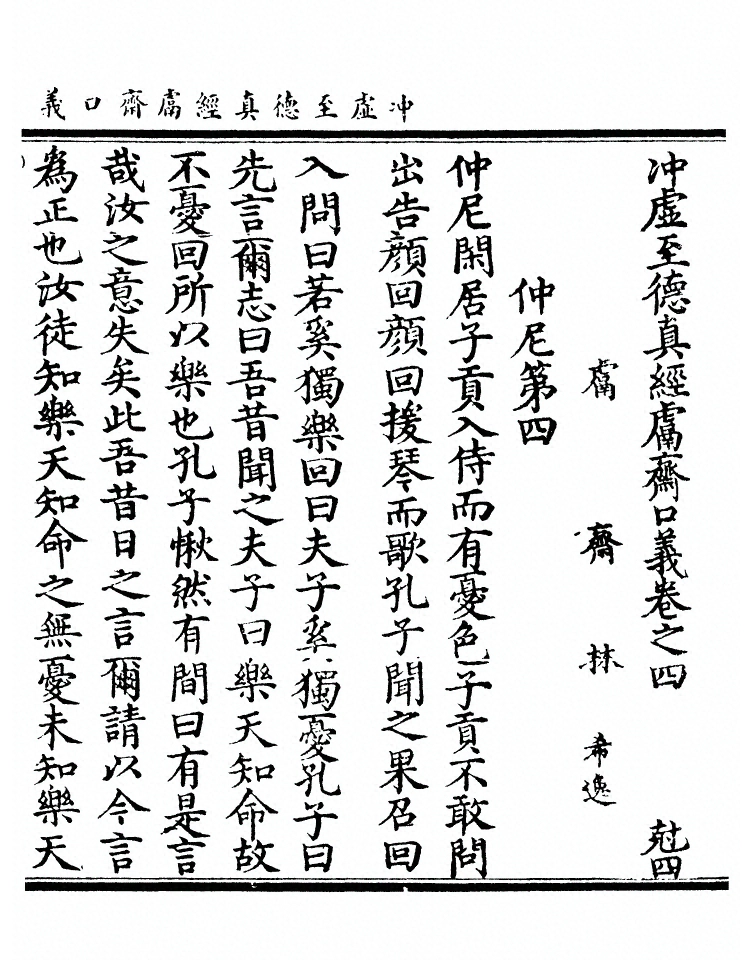 冲虛至德真經鬳齋口義
冲虛至德真經鬳齋口義卷之四 尅四
鬳齋 林 希逸
仲尼第四
仲尼閑居子貢入侍而有憂色子貢不敢問
出告顔回顔回援琴而歌孔子聞之果召回
入問曰若奚獨樂回曰夫子奚獨憂孔子曰
先言爾志曰吾昔聞之夫子曰樂天知命故
不憂回所以樂也孔子愀然有間曰有是言
哉汝之意失矣此吾昔日之言爾請以今言
為正也汝徒知樂天知命之無憂未知樂天